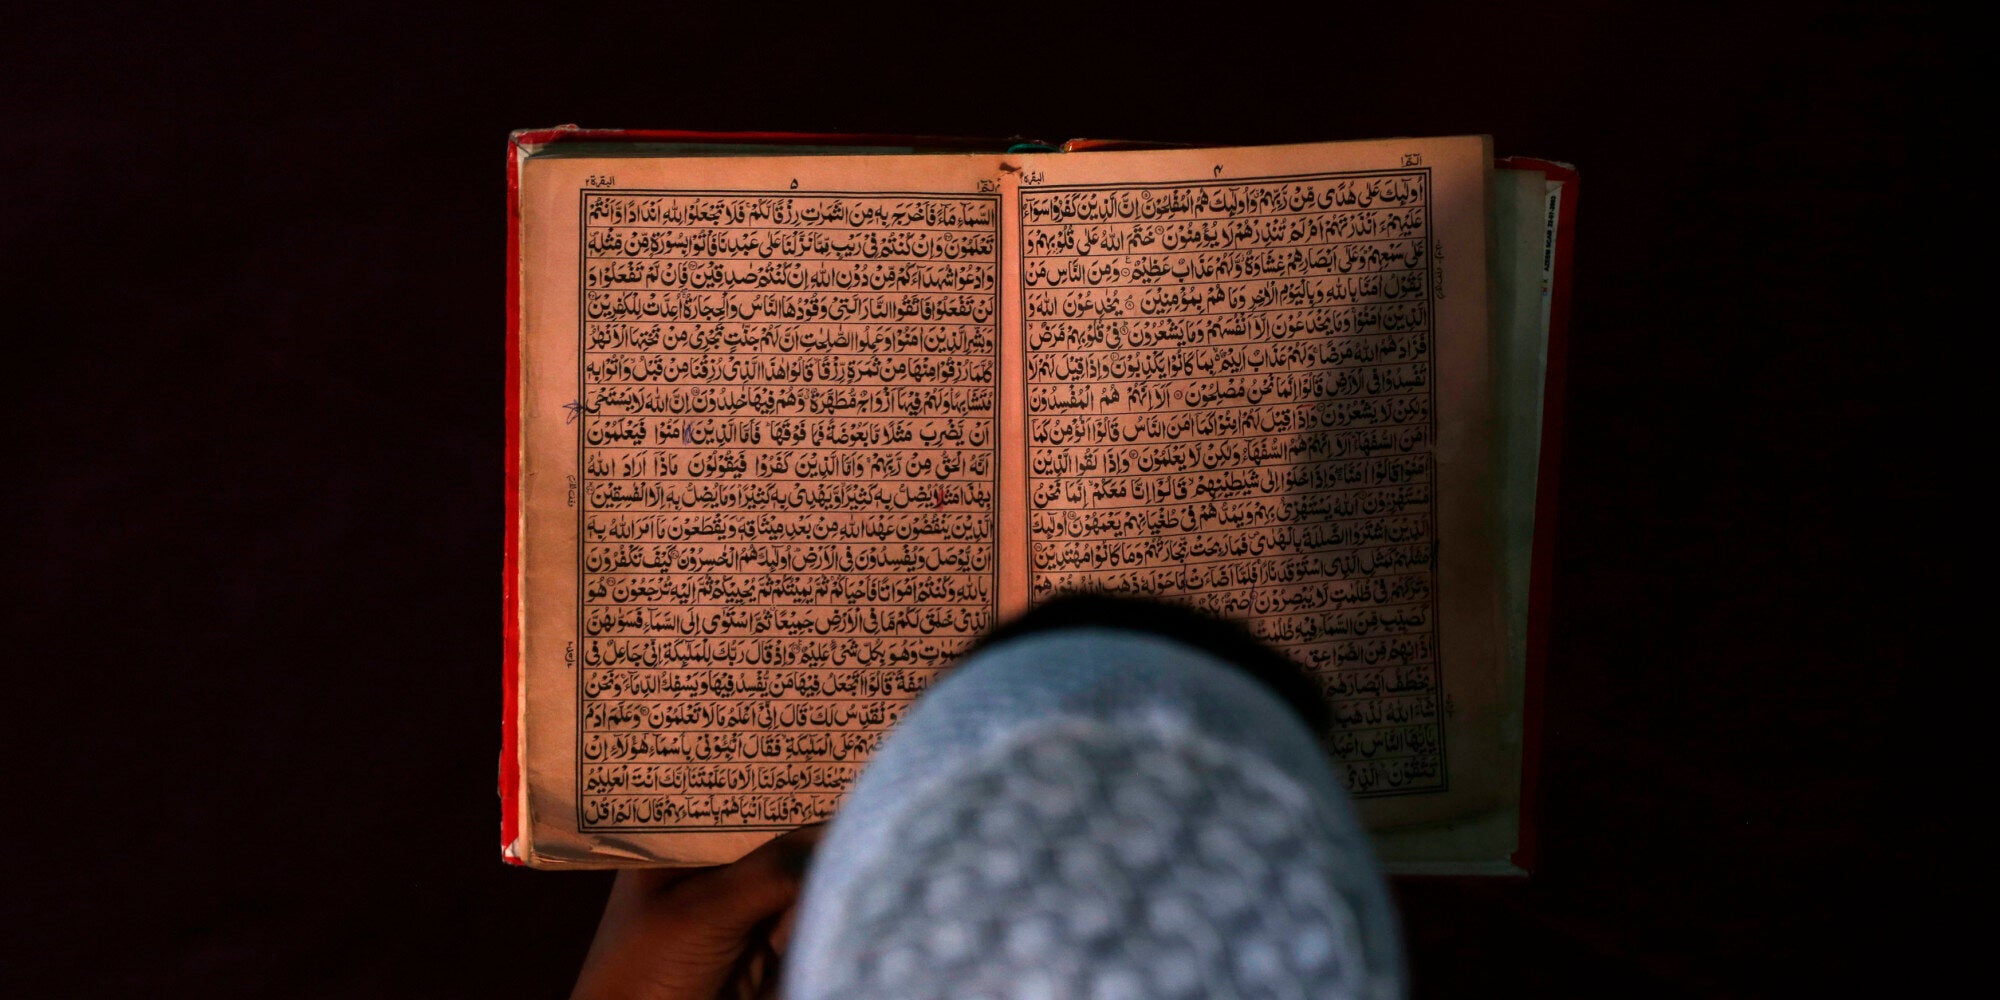 البقرة ٢ ۴ الٓمّٓ ١
اُولٰٓئِكَ عَلٰى هُدًى مِّنْ رَّبِّهِمْ وَاُولٰٓئِكَ هُمُ الْمُفْلِحُوْنَ اِنَّ الَّذِيْنَ كَفَرُوْا سَوَآءٌ
عَلَيْهِمْ ءَاَنْذَرْتَهُمْ اَمْ لَمْ تُنْذِرْهُمْ لَا يُؤْمِنُوْنَ خَتَمَ اللّٰهُ عَلٰى قُلُوْبِهِمْ وَ
عَلٰى سَمْعِهِمْ وَعَلٰٓى اَبْصَارِهِمْ غِشَاوَةٌ وَّلَهُمْ عَذَابٌ عَظِيْمٌ وَمِنَ النَّاسِ مَنْ
يَّقُوْلُ اٰمَنَّا بِاللّٰهِ وَبِالْيَوْمِ الْاٰخِرِ وَمَا هُمْ بِمُؤْمِنِيْنَ يُخٰدِعُوْنَ اللّٰهَ وَ
الَّذِيْنَ اٰمَنُوْا وَمَا يَخْدَعُوْنَ اِلَّآ اَنْفُسَهُمْ وَمَا يَشْعُرُوْنَ فِيْ قُلُوْبِهِمْ مَّرَضٌ
فَزَادَهُمُ اللّٰهُ مَرَضًا وَلَهُمْ عَذَابٌ اَلِيْمٌ بِمَا كَانُوْا يَكْذِبُوْنَ وَاِذَا قِيْلَ لَهُمْ لَا
تُفْسِدُوْا فِى الْاَرْضِ قَالُوْٓا اِنَّمَا نَحْنُ مُصْلِحُوْنَ اَلَآ اِنَّهُمْ هُمُ الْمُفْسِدُوْنَ
وَلٰكِنْ لَّا يَشْعُرُوْنَ وَاِذَا قِيْلَ لَهُمْ اٰمِنُوْا كَمَآ اٰمَنَ النَّاسُ قَالُوْٓا اَنُؤْمِنُ كَمَآ
اٰمَنَ السُّفَهَآءُ اَلَآ اِنَّهُمْ هُمُ السُّفَهَآءُ وَلٰكِنْ لَّا يَعْلَمُوْنَ وَاِذَا لَقُوا الَّذِيْنَ
اٰمَنُوْا قَالُوْٓا اٰمَنَّا وَاِذَا خَلَوْا اِلٰى شَيٰطِيْنِهِمْ قَالُوْٓا اِنَّا مَعَكُمْ اِنَّمَا نَحْنُ
مُسْتَهْزِءُوْنَ اَللّٰهُ يَسْتَهْزِئُ بِهِمْ وَيَمُدُّهُمْ فِيْ طُغْيَانِهِمْ يَعْمَهُوْنَ اُولٰٓئِكَ
الَّذِيْنَ اشْتَرَوُا الضَّلٰلَةَ بِالْهُدٰى فَمَا رَبِحَتْ تِّجَارَتُهُمْ وَمَا كَانُوْا مُهْتَدِيْنَ
مَثَلُهُمْ كَمَثَلِ الَّذِى اسْتَوْقَدَ نَارًا فَلَمَّآ اَضَآءَتْ مَا حَوْلَهٗ ذَهَبَ اللّٰهُ بِنُوْرِهِمْ
وَتَرَكَهُمْ فِيْ ظُلُمٰتٍ لَّا يُبْصِرُوْنَ صُمٌّ
كَصَيِّبٍ مِّنَ السَّمَآءِ فِيْهِ ظُلُمٰتٌ
اٰذَانِهِمْ مِّنَ الصَّوَاعِقِ
يَخْطَفُ اَبْصَارَهُمْ
شَآءَ اللّٰهُ لَذَهَبَ
يٰٓاَيُّهَا النَّاسُ
تَتَّقُوْنَ الَّذِيْ
البقرة ٢ ۵ الٓمّٓ ١
السَّمَآءِ مَآءً فَاَخْرَجَ بِهٖ مِنَ الثَّمَرٰتِ رِزْقًا لَّكُمْ فَلَا تَجْعَلُوْا لِلّٰهِ اَنْدَادًا وَّاَنْتُمْ
تَعْلَمُوْنَ وَاِنْ كُنْتُمْ فِيْ رَيْبٍ مِّمَّا نَزَّلْنَا عَلٰى عَبْدِنَا فَاْتُوْا بِسُوْرَةٍ مِّنْ مِّثْلِهٖ
وَادْعُوْا شُهَدَآءَكُمْ مِّنْ دُوْنِ اللّٰهِ اِنْ كُنْتُمْ صٰدِقِيْنَ فَاِنْ لَّمْ تَفْعَلُوْا وَ
لَنْ تَفْعَلُوْا فَاتَّقُوا النَّارَ الَّتِيْ وَقُوْدُهَا النَّاسُ وَالْحِجَارَةُ اُعِدَّتْ لِلْكٰفِرِيْنَ
وَبَشِّرِ الَّذِيْنَ اٰمَنُوْا وَعَمِلُوا الصّٰلِحٰتِ اَنَّ لَهُمْ جَنّٰتٍ تَجْرِيْ مِنْ تَحْتِهَا الْاَنْهٰرُ
كُلَّمَا رُزِقُوْا مِنْهَا مِنْ ثَمَرَةٍ رِّزْقًا قَالُوْا هٰذَا الَّذِيْ رُزِقْنَا مِنْ قَبْلُ وَاُتُوْا بِهٖ
مُتَشَابِهًا وَلَهُمْ فِيْهَآ اَزْوَاجٌ مُّطَهَّرَةٌ وَّهُمْ فِيْهَا خٰلِدُوْنَ اِنَّ اللّٰهَ لَا يَسْتَحْيٖٓ
اَنْ يَّضْرِبَ مَثَلًا مَّا بَعُوْضَةً فَمَا فَوْقَهَا فَاَمَّا الَّذِيْنَ اٰمَنُوْا فَيَعْلَمُوْنَ
اَنَّهُ الْحَقُّ مِنْ رَّبِّهِمْ وَاَمَّا الَّذِيْنَ كَفَرُوْا فَيَقُوْلُوْنَ مَاذَآ اَرَادَ اللّٰهُ
بِهٰذَا مَثَلًا يُضِلُّ بِهٖ كَثِيْرًا وَّيَهْدِيْ بِهٖ كَثِيْرًا وَمَا يُضِلُّ بِهٖٓ اِلَّا الْفٰسِقِيْنَ
الَّذِيْنَ يَنْقُضُوْنَ عَهْدَ اللّٰهِ مِنْ بَعْدِ مِيْثَاقِهٖ وَيَقْطَعُوْنَ مَآ اَمَرَ اللّٰهُ بِهٖٓ
اَنْ يُّوْصَلَ وَيُفْسِدُوْنَ فِى الْاَرْضِ اُولٰٓئِكَ هُمُ الْخٰسِرُوْنَ كَيْفَ تَكْفُرُوْنَ
بِاللّٰهِ وَكُنْتُمْ اَمْوَاتًا فَاَحْيَاكُمْ ثُمَّ يُمِيْتُكُمْ ثُمَّ يُحْيِيْكُمْ ثُمَّ اِلَيْهِ تُرْجَعُوْنَ هُوَ
الَّذِيْ خَلَقَ لَكُمْ مَّا فِى الْاَرْضِ جَمِيْعًا ثُمَّ اسْتَوٰٓى اِلَى السَّمَآءِ فَسَوّٰىهُنَّ
سَمٰوٰتٍ وَهُوَ بِكُلِّ شَيْءٍ عَلِيْمٌ وَاِذْ قَالَ رَبُّكَ لِلْمَلٰٓئِكَةِ اِنِّيْ جَاعِلٌ فِى
خَلِيْفَةً قَالُوْٓا اَتَجْعَلُ فِيْهَا مَنْ يُّفْسِدُ فِيْهَا وَيَسْفِكُ الدِّمَآءَ وَنَحْنُ
وَنُقَدِّسُ لَكَ قَالَ اِنِّيْٓ اَعْلَمُ مَا لَا تَعْلَمُوْنَ وَعَلَّمَ اٰدَمَ
عَرَضَهُمْ عَلَى الْمَلٰٓئِكَةِ فَقَالَ اَنْبِـُٔوْنِيْ بِاَسْمَآءِ هٰٓؤُلَآءِ اِنْ
سُبْحٰنَكَ لَا عِلْمَ لَنَآ اِلَّا مَا عَلَّمْتَنَا اِنَّكَ اَنْتَ الْعَلِيْمُ
بِاَسْمَآئِهِمْ فَلَمَّآ اَنْۢبَاَهُمْ بِاَسْمَآئِهِمْ قَالَ اَلَمْ اَقُلْ